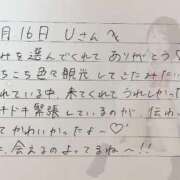 月16日 Uさんへ
みを選んでくれてありがとう
ちこち色々観光してきたみたい
ている中、来てくれてうれしかった
ドキ緊張しているのが、伝わ
てかわいかったよ〜♡
、会えるのよってるね〜!!